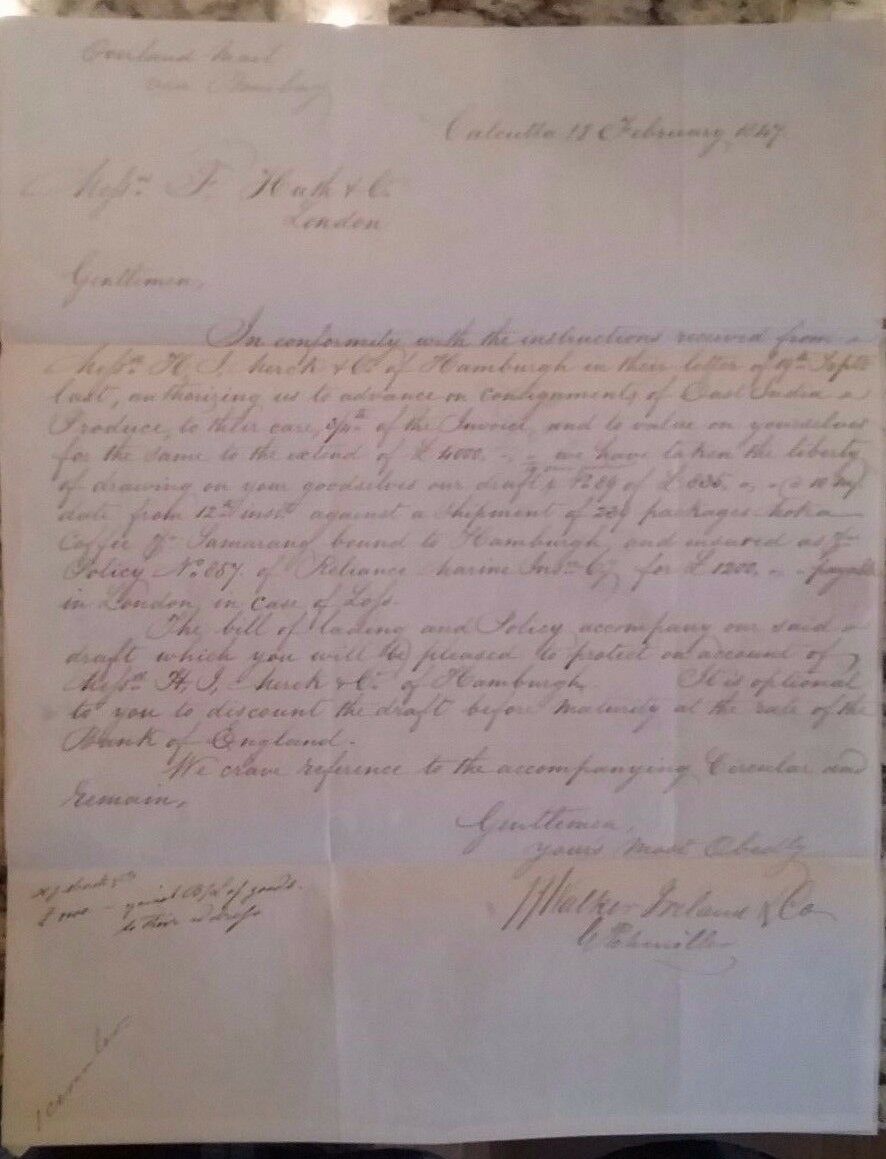 Overland Mail
via Bombay
Calcutta 18 February 1847.
Messrs F. Huth & Co.
London
Gentlemen,
In conformity with the instructions received from
Messrs H. J. Merck & Co. of Hamburgh in their letter of 19th Septr
last, authorizing us to advance on consignments of East India
Produce, to their care, 3/4th of the Invoice, and to value on yourselves
for the same to the extend of £ 4000. - - we have taken the liberty
of drawing on your goodselves our draft No 89 of £ 635. - - @ 10 m/
date from 12th inst. against a shipment of 289 packages
Coffee Samarang bound to Hamburgh and insured as pr
Policy No. 857. of Reliance Marine Insce Co. for £ 1200. - - payable
in London, in case of Loss.
The bill of lading and Policy accompany our said
draft which you will be pleased to protect on account of
Messrs H. J. Merck & Co. of Hamburgh. It is optional
to you to discount the draft before maturity at the rate of the
Bank of England.
We crave reference to the accompanying Circular and
Remain,
Gentlemen,
yours Most Obedtly
Walker Ireland & Co
of goods
to their address